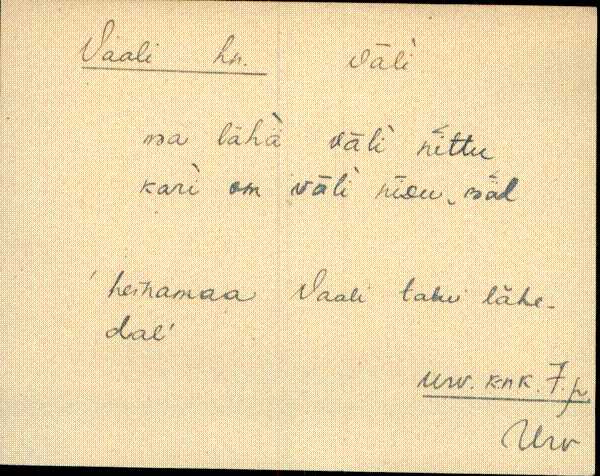 Vaali hn. väli
ma lähä väli nittu
kari om väli niou, sääl
'heinamaa Vaali talu lähe-
dal'
Urv. knk. 7. p
Urv